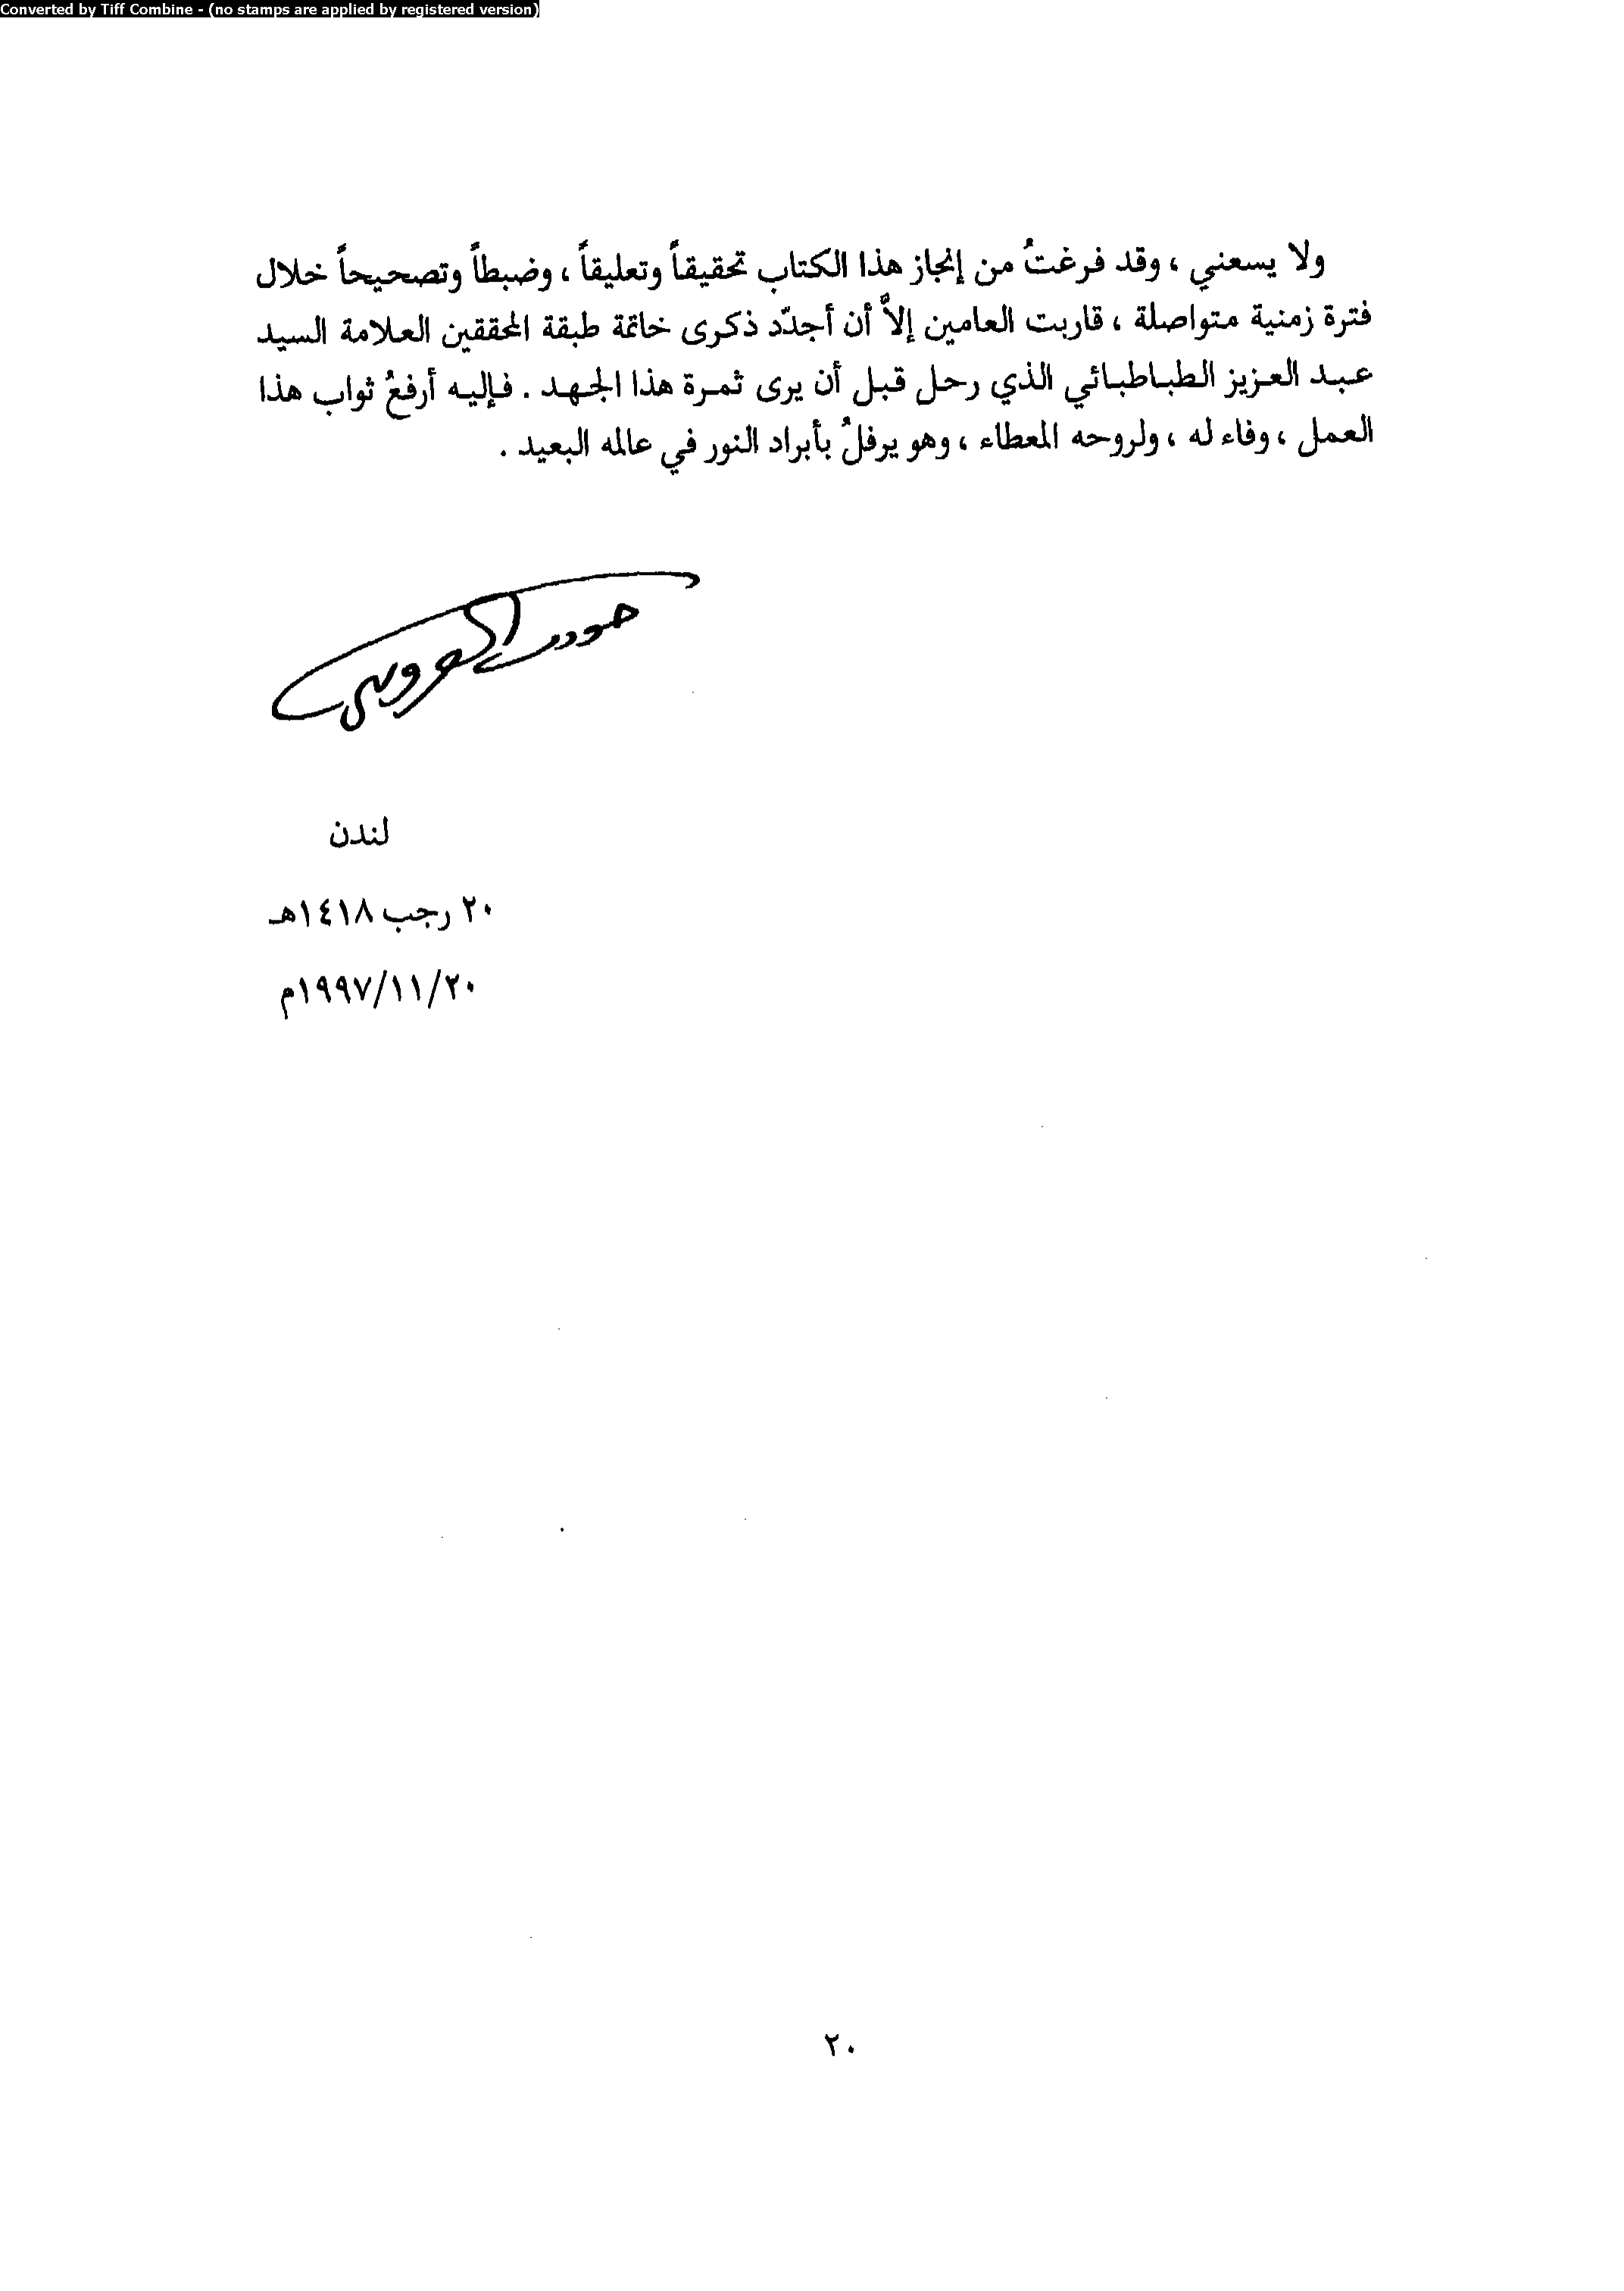 Converted by Tiff Combine - (no stamps are applied by registered version)
ولا يسعني ، وقد فرغتُ من إنجاز هذا الكتاب تحقيقاً وتعليقاً ، وضبطاً وتصحيحاً خلال
فترة زمنية متواصلة ، قاربت العامين إلاَّ أن أجدّد ذكرى خاتمة طبقة المحققين العلامة السيد
عبد العزيز الطباطبائي الذي رحل قبل أن يرى ثمرة هذا الجهد . فإليه أرفعُ ثواب هذا
العمل ، وفاء له ، ولروحه المعطاء ، وهو يرفلُ بأبراد النور في عالمه البعيد .
لندن
٢٠ رجب ١٤١٨هـ
١٩٩٧/١١/٢٠م
٢٠